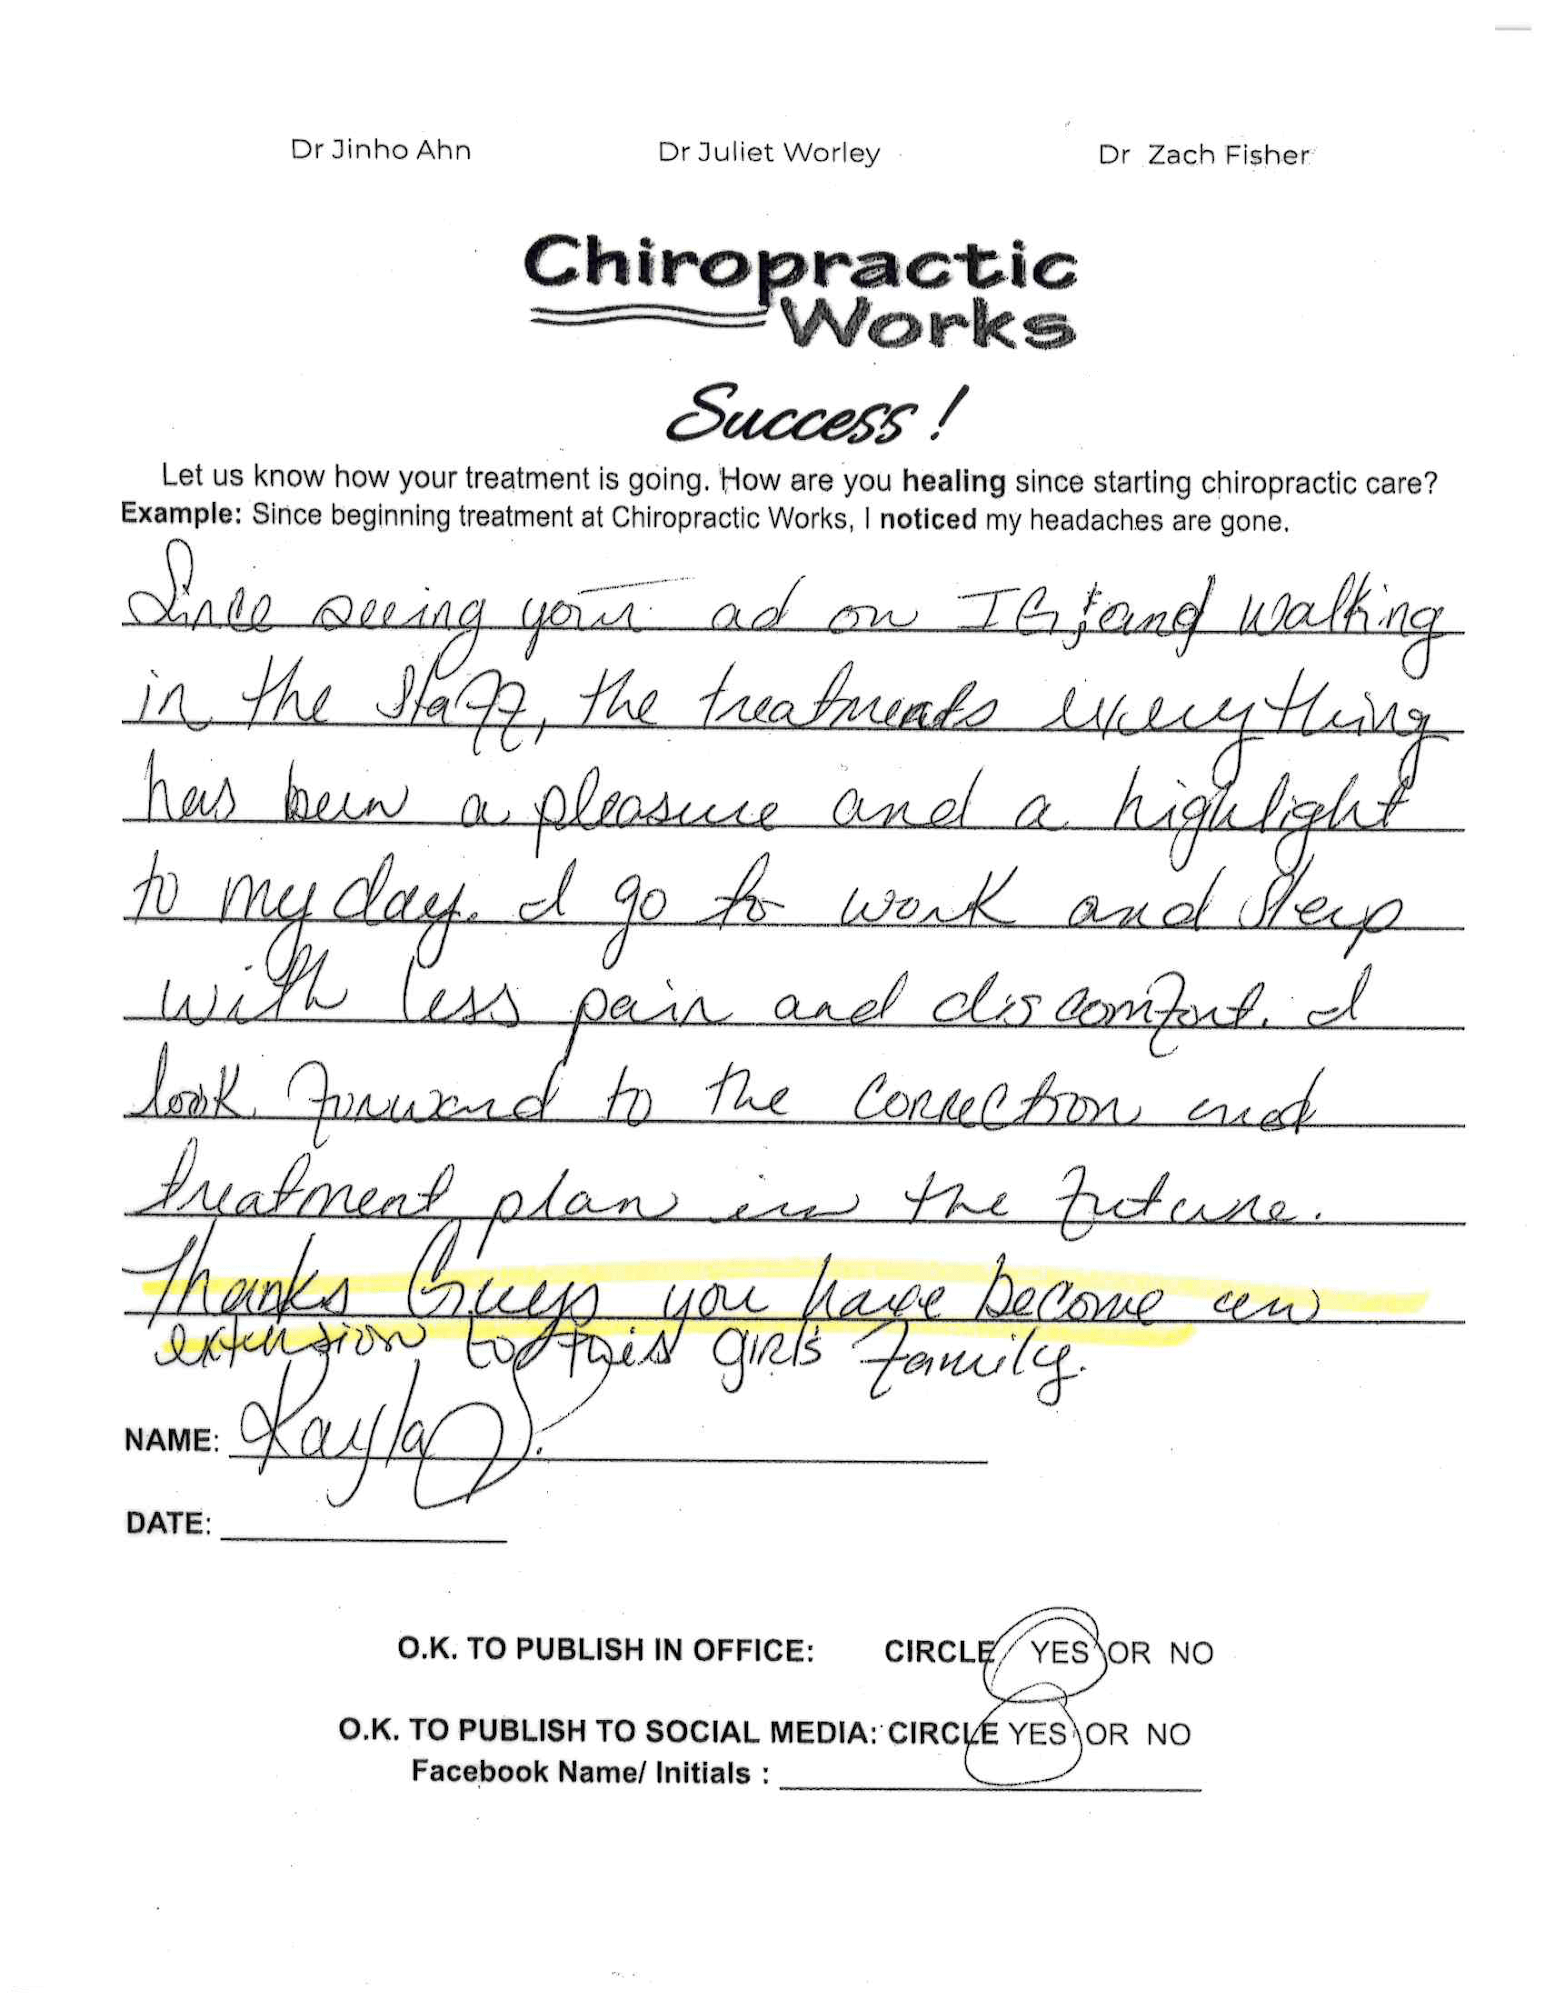 Dr Jinho Ahn Dr Juliet Worley Dr Zach Fisher
Chiropractic
Works
Success!
Let us know how your treatment is going. How are you healing since starting chiropractic care?
Example: Since beginning treatment at Chiropractic Works, I noticed my headaches are gone.
Since seeing your ad on IG and walking
in the staff, the treatments everything
has been a pleasure and a highlight
to my day. I go to work and sleep
with less pain and discomfort. I
look forward to the correction and
treatment plan in the future.
Thanks Guys you have become an
extension to this girl's family.
NAME: Kayla S.
DATE:
O.K. TO PUBLISH IN OFFICE: CIRCLE YES OR NO
O.K. TO PUBLISH TO SOCIAL MEDIA: CIRCLE YES OR NO
Facebook Name/ Initials :